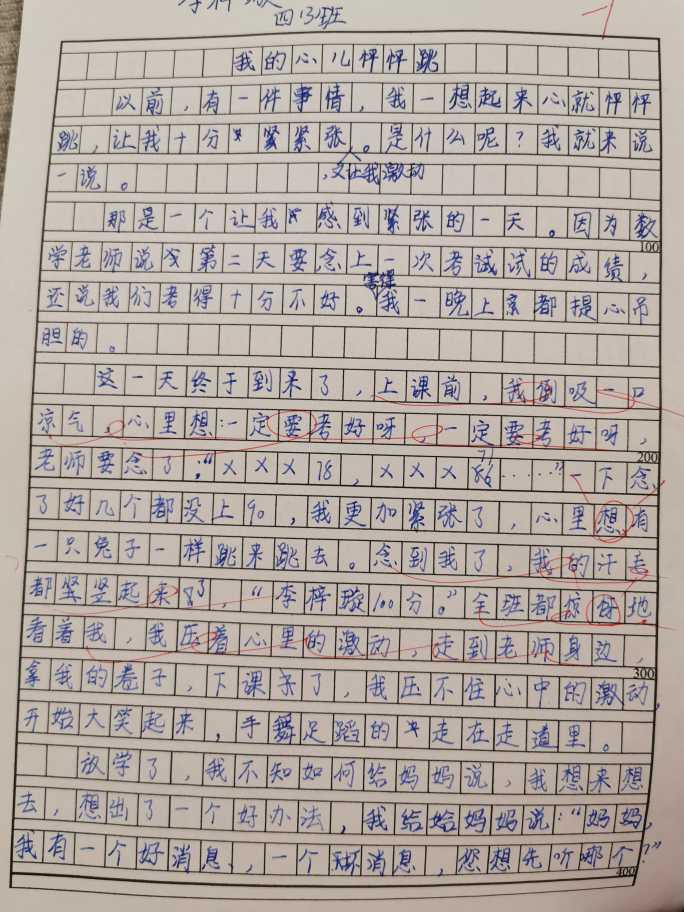 四13班
我的心儿怦怦跳
以前，有一件事情，我一想起来心就怦怦
跳，让我十分紧紧张。是什么呢？我就来说
，又让我激动
一说。
那是一个让我感到紧张的一天。因为数
100
学老师说第二天要念上一次考试试的成绩，
害得
还说我们考得十分不好。我一晚上都提心吊
胆的。
这一天终于到来了，上课前，我倒吸一口
凉气，心里想：一定要考好呀，一定要考好呀，
200
老师要念了：“×××78，×××86……”一下念
了好几个都没上90，我更加紧张了，心里想有
一只兔子一样跳来跳去。念到我了，我的汗毛
都竖竖起来了，“李梓璇100分。”全班都惊讶地
看着我，我压着心里的激动，走到老师身边，
300
拿我的卷子，下课了，我压不住心中的激动，
开始大笑起来，手舞足蹈的走在走道里。
放学了，我不知如何给妈妈说，我想来想
去，想出了一个好办法，我给给妈妈说：“妈妈，
我有一个好消息，一个坏消息，您想先听哪个？”
400